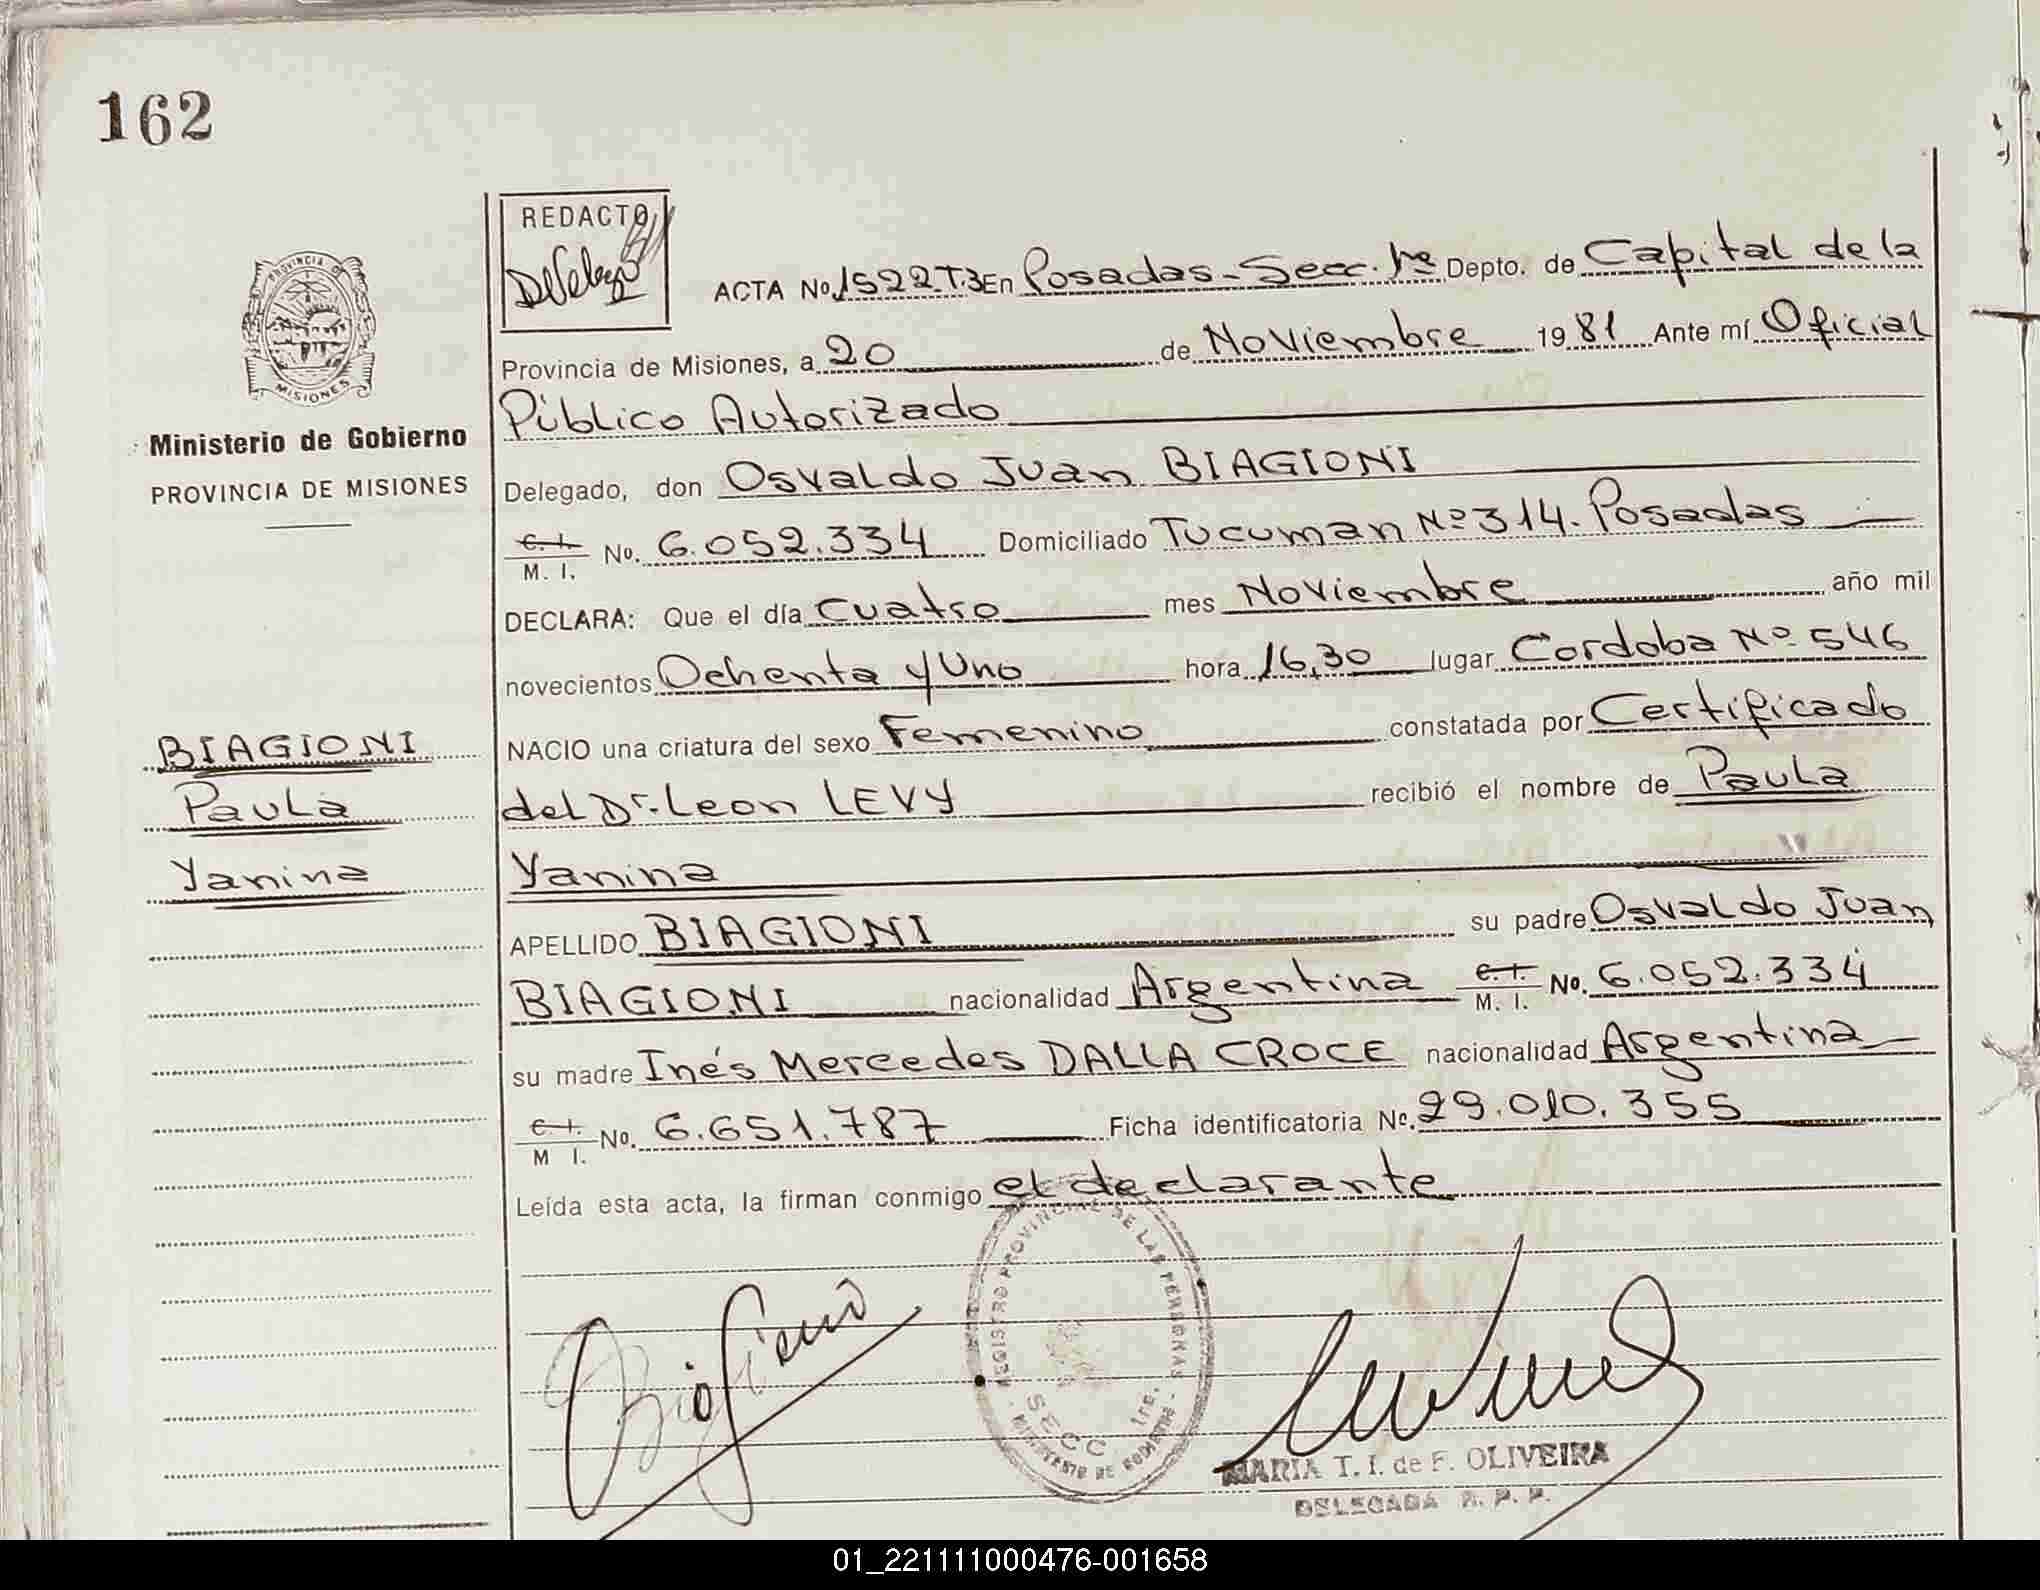 162
REDACTO
PROVINCIA DE
MISIONES
ACTA No. 1522.T.3 En Posadas-Secc. 1ª Depto. de Capital de la
Provincia de Misiones, a 20 de Noviembre 1981 Ante mí Oficial
Público Autorizado
Ministerio de Gobierno
PROVINCIA DE MISIONES
Delegado, don Osvaldo Juan BIAGIONI
C. I. M. I. No. 6.052.334 Domiciliado Tucuman Nº 314. Posadas
DECLARA: Que el día cuatro mes Noviembre año mil
novecientos Ochenta y Uno hora 16,30 lugar Cordoba Nº 546
BIAGIONI
Paula
Yanina
NACIO una criatura del sexo Femenino constatada por Certificado
del Dr. Leon LEVY recibió el nombre de Paula
Yanina
APELLIDO BIAGIONI su padre Osvaldo Juan
BIAGIONI nacionalidad Argentina C. I. M. I. No. 6.052.334
su madre Inés Mercedes DALLA CROCE nacionalidad Argentina
C. I. M I. No. 6.651.787 Ficha identificatoria No. 29.010.355
Leída esta acta, la firman conmigo el declarante
REGISTRO PROVINCIAL DE LAS PERSONAS
SECC. 1ra.
MINISTERIO DE GOBIERNO
MARIA T. I. de F. OLIVEIRA
DELEGADA R. P. P.
01_221111000476-001658